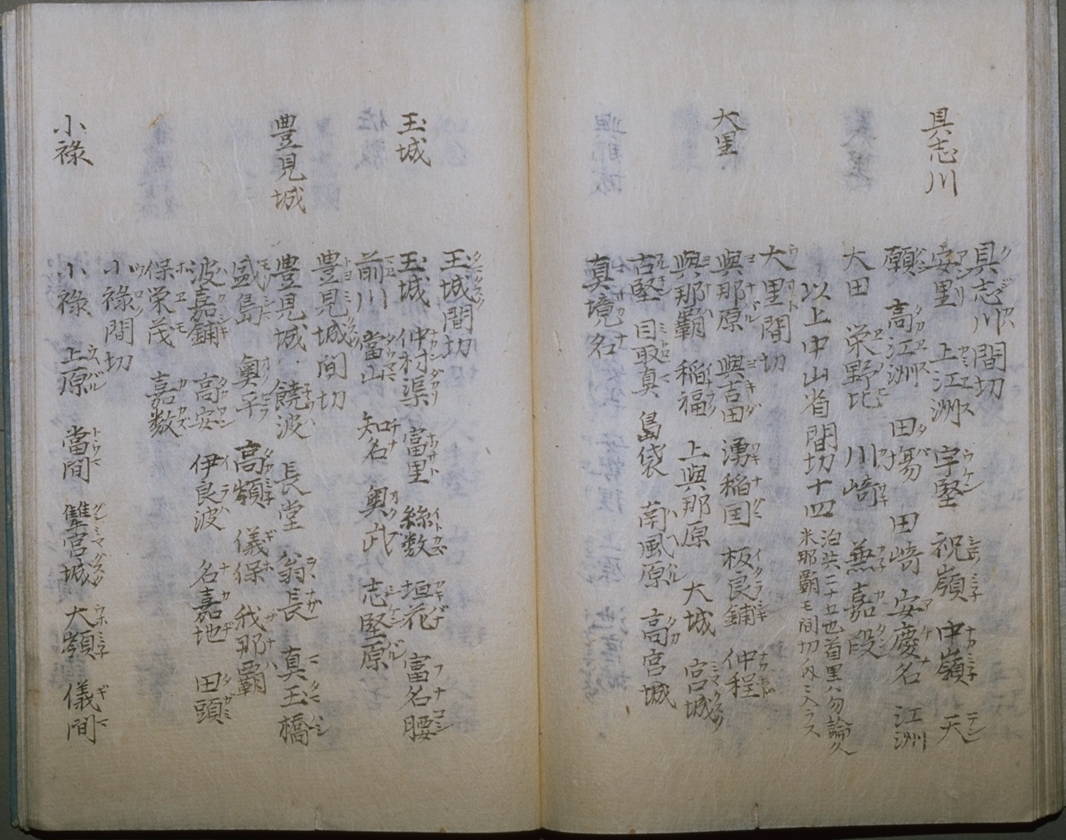 具志川
具志川間切
安里 上江洲 宇堅 祝嶺 中嶺 天
願 高江洲 田場 田﨑 安慶名 江洲
大田 栄野比 川﨑 無嘉段
以上中山省間切十四
泊共ニ十五也首里ハ勿論久
米那覇モ間切外ニ入ラス
大里
大里間切
與那原 與吉田 湧稲国 板良鋪 仲程
與那覇 稲福 上與那原 大城 宮城
古堅 目取真 島袋 南風原 高宮城
真境名
玉城
玉城間切
玉城 仲村渠 當里 絲数 垣花 富名腰
前川 當山 知名 奥武 志堅原
豊見城
豊見城間切
豊見城 饒波 長堂 翁長 真玉橋
盛島 奥平 高嶺 儀保 我那覇
波嘉鋪 高安 伊良波 名嘉地 田頭
保栄茂 嘉数
小禄
小禄間切
小禄 上原 當間 雙宮城 大嶺 儀間